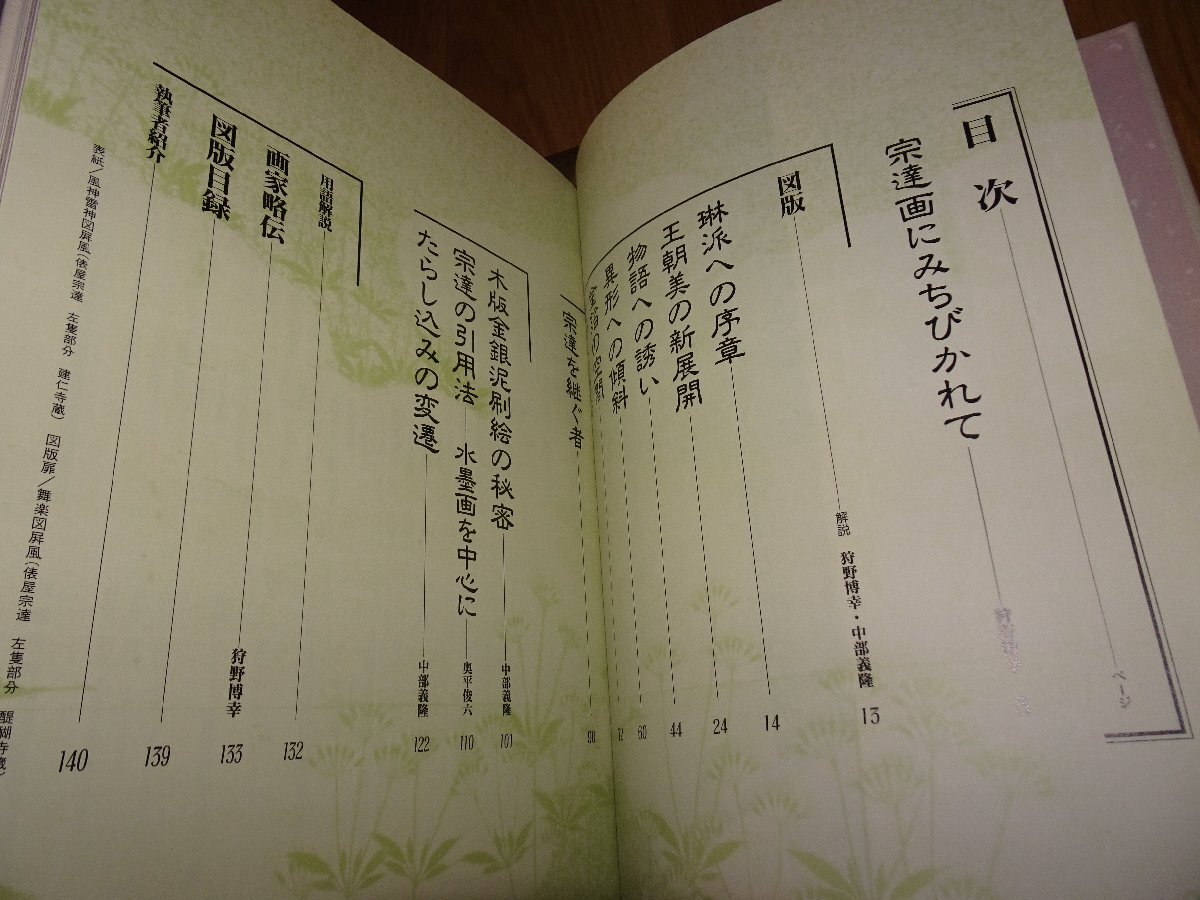 目次
ページ
宗達画にみちびかれて
図版 解説 狩野博幸・中部義隆 13
琳派への序章 14
王朝美の新展開 24
物語への誘い 44
異形への傾斜 60
宗達を継ぐ者 90
木版金銀泥刷絵の秘密 中部義隆 101
宗達の引用法 水墨画を中心に 奥平俊六 110
たらし込みの変遷 中部義隆 122
用語解説 132
画家略伝 狩野博幸 133
図版目録 139
執筆者紹介 140
表紙/風神雷神図屏風(俵屋宗達 左隻部分 建仁寺蔵) 図版扉/舞楽図屏風(俵屋宗達 左隻部分 醍醐寺蔵)